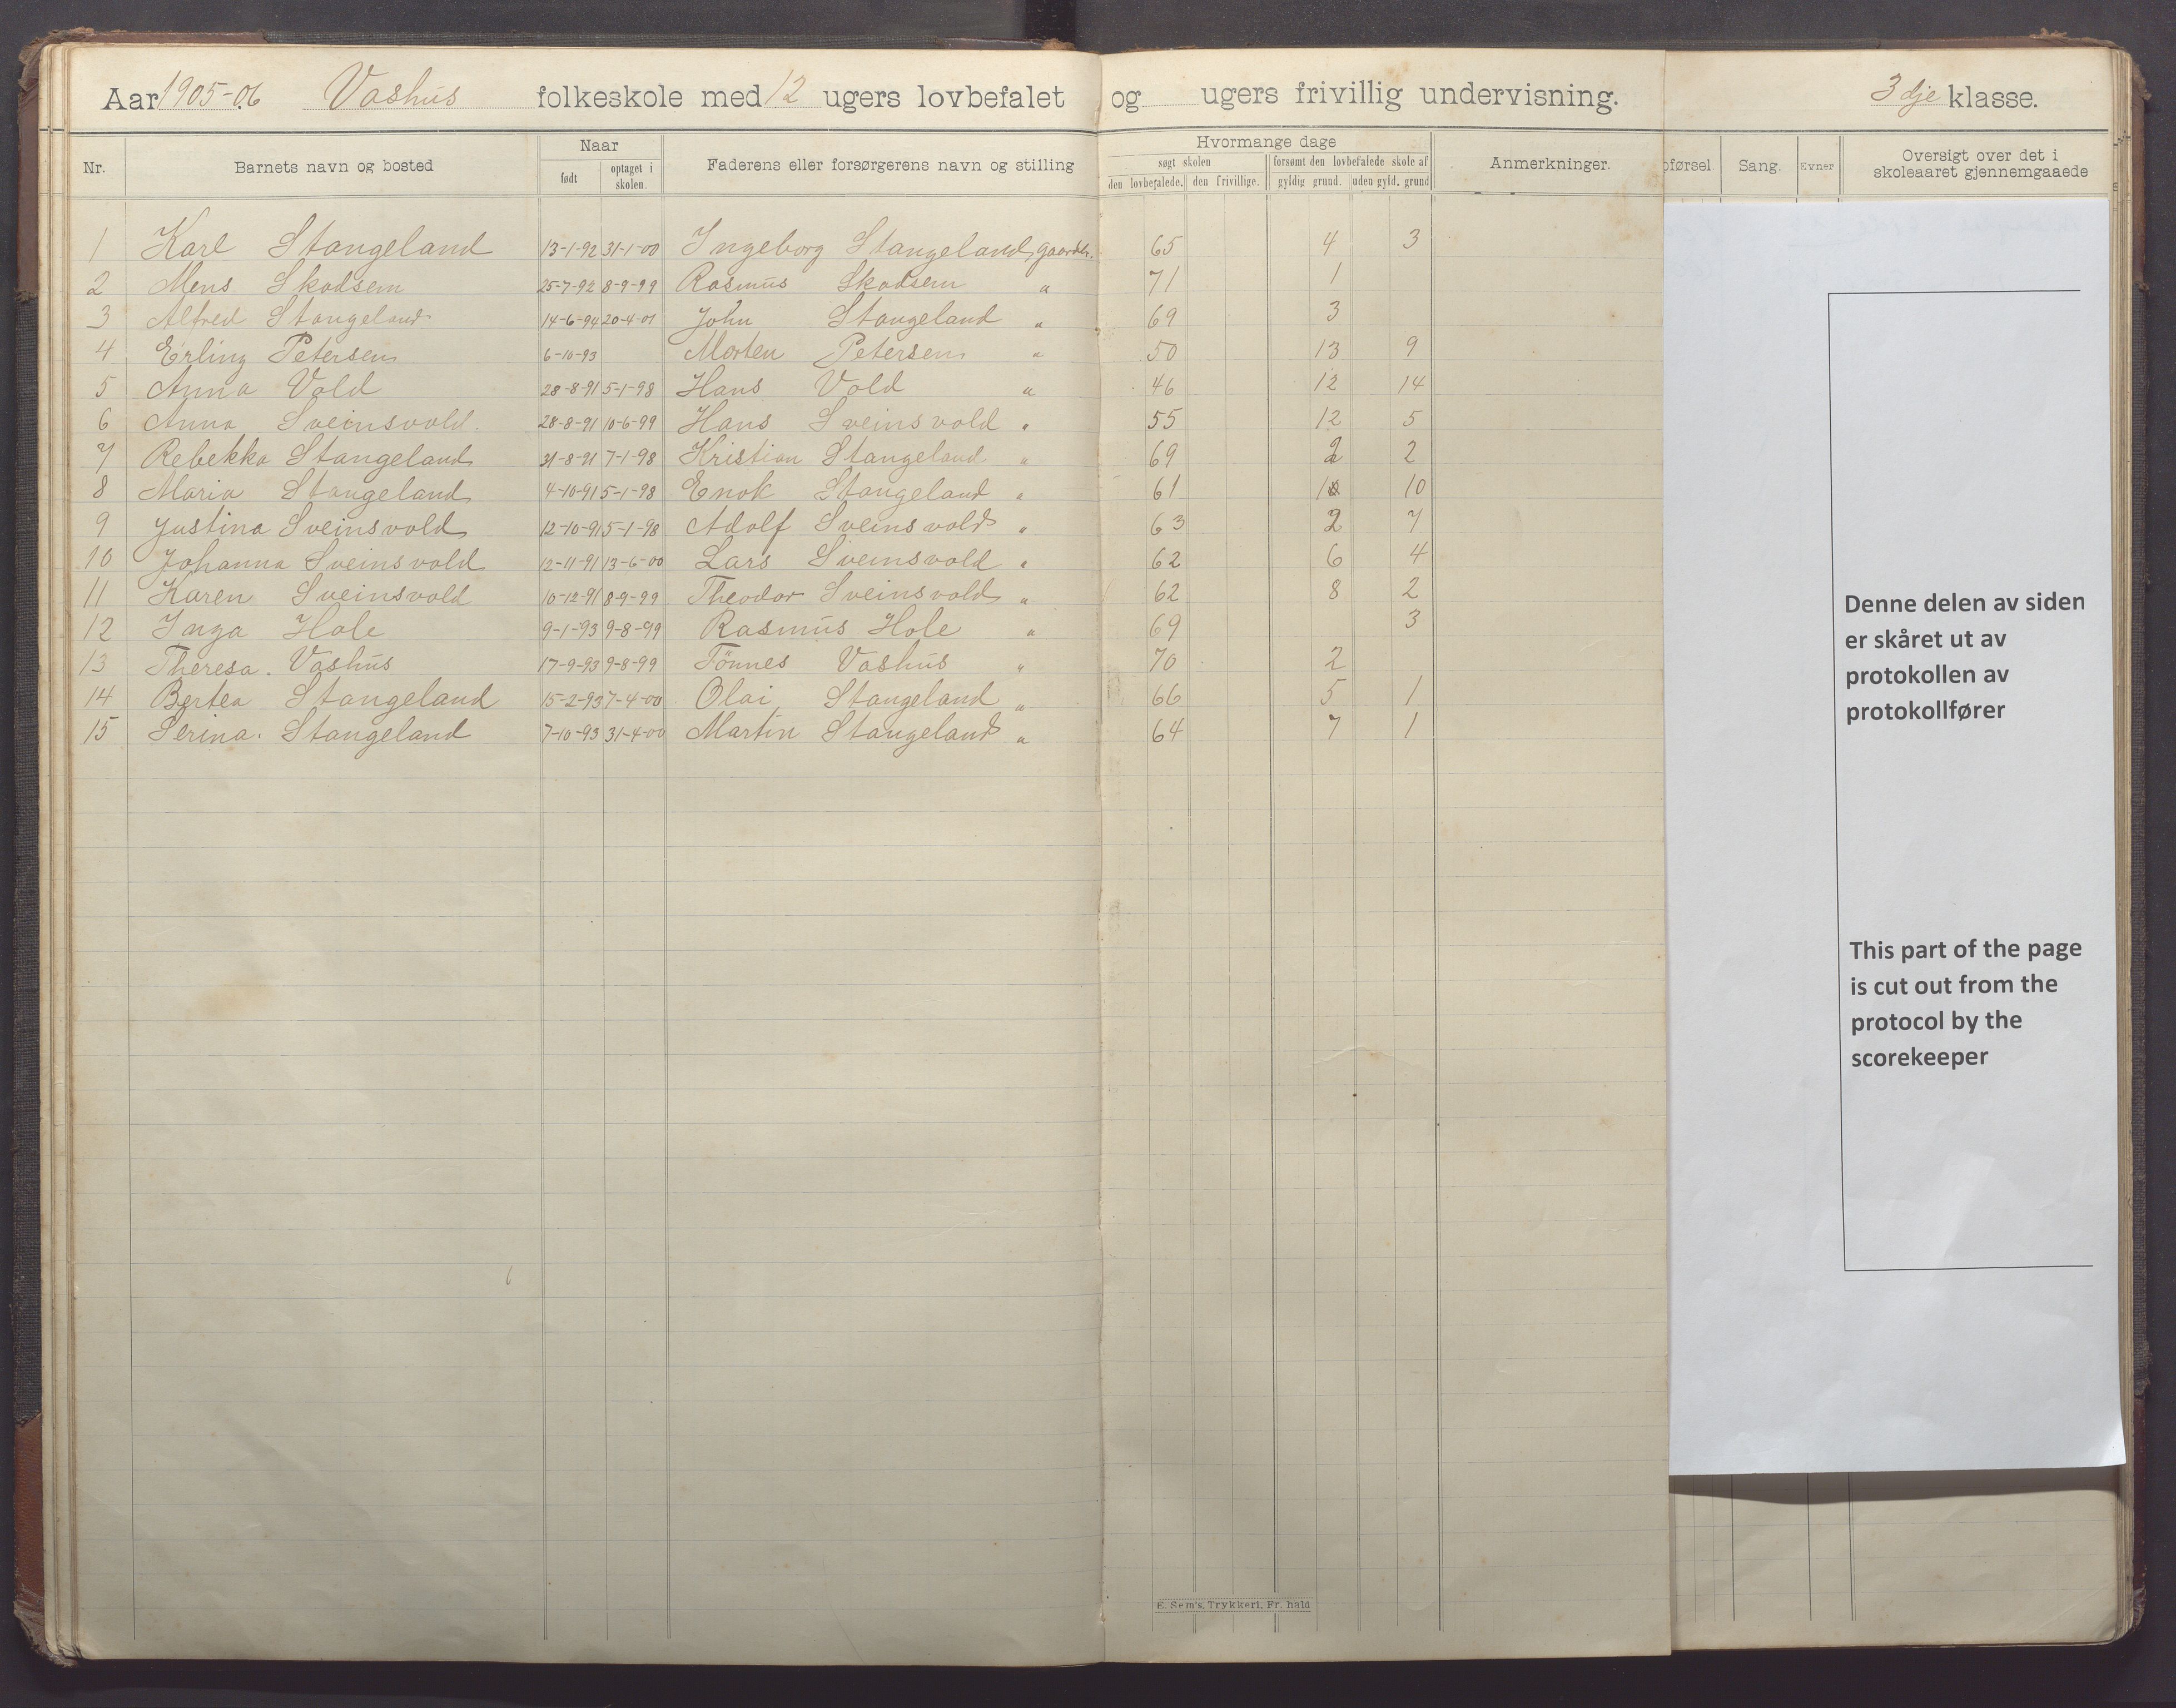 Aar 1905-06 Vashus folkeskole med 12 ugers lovbefalet og ugers frivillig undervisning. 3dje klasse.
Nr. Barnets navn og bosted Naar født optaget i skolen. Faderens eller forsørgerens navn og stilling Hvormange dage søgt skolen den lovbefalede. den frivillige. forsømt den lovbefalede skole af gyldig grund. uden gyld. grund Anmerkninger. Sang. Evner Oversigt over det i skoleaaret gjennemgaaede
1 Karl Stangeland 13-1-92 31-1-00 Ingeborg Stangeland, gaardbr. 65 4 3
2 Mens Skadsem 25-7-92 8-9-99 Rasmus Skadsem " 71 1
3 Alfred Stangeland 14-6-94 20-4-01 John Stangeland " 69 3
4 Erling Petersen 6-10-93 Morten Petersen " 50 13 9
5 Anna Vold 28-8-91 5-1-98 Hans Vold " 46 12 14
6 Anna Sveinsvold. 28-8-91 10-6-99 Hans Sveinsvold " 55 12 5
7 Rebekka Stangeland 31-8-91 7-1-98 Kristian Stangeland " 69 2 2
8 Maria Stangeland 4-10-91 5-1-98 Enok Stangeland " 61 1 10
9 Justina Sveinsvold 12-10-91 5-1-98 Adolf Sveinsvold " 63 2 7
10 Johanna Sveinsvold 12-11-91 13-6-00 Lars Sveinsvold " 62 6 4
11 Karen Sveinsvold 10-12-91 8-9-99 Theodor Sveinsvold " 62 8 2
12 Inga Hole 9-1-93 9-8-99 Rasmus Hole " 69 3
13 Theresa. Vashus 17-9-93 9-8-99 Tönnes Vashus " 70 2
14 Bertea Stangeland 15-2-93 7-4-00 Olai Stangeland " 66 5 1
15 Serina. Stangeland 7-10-93 31-4-00 Martin Stangeland " 64 7 1
E. Sem's, Trykkeri, Fr. hald
Denne delen av siden
er skåret ut av
protokollen av
protokollfører
This part of the page
is cut out from the
protocol by the
scorekeeper